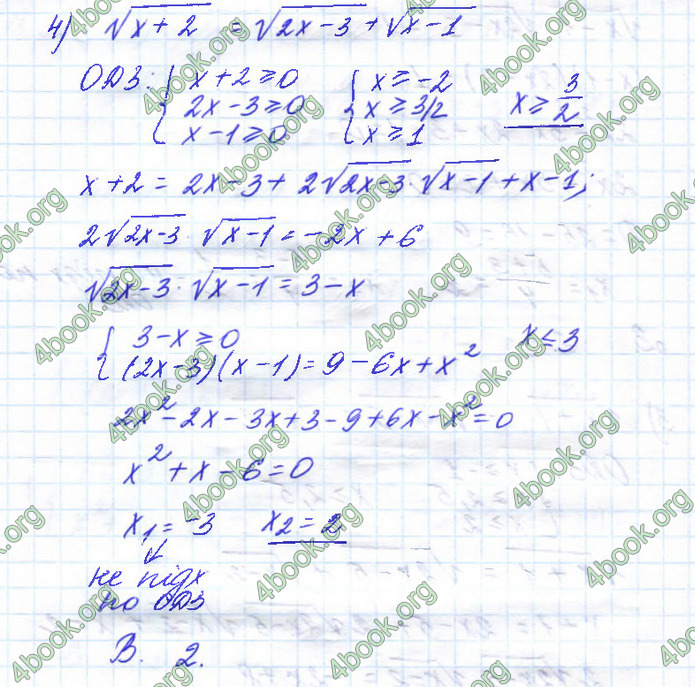 4) √(x+2) = √(2x-3) + √(x-1)
ОДЗ: { x+2≥0 { x≥-2
2x-3≥0 x≥3/2 x≥3/2
x-1≥0 x≥1
x+2 = 2x-3+ 2√(2x-3)·√(x-1)+x-1;
2√(2x-3)·√(x-1) = -2x+6
√(2x-3)·√(x-1) = 3-x
{ 3-x≥0 x≤3
(2x-3)(x-1)=9-6x+x²
2x²-2x-3x+3-9+6x-x²=0
x²+x-6=0
x₁=-3 x₂=2
↓
не підх
по ОДЗ
В. 2.
4book.org